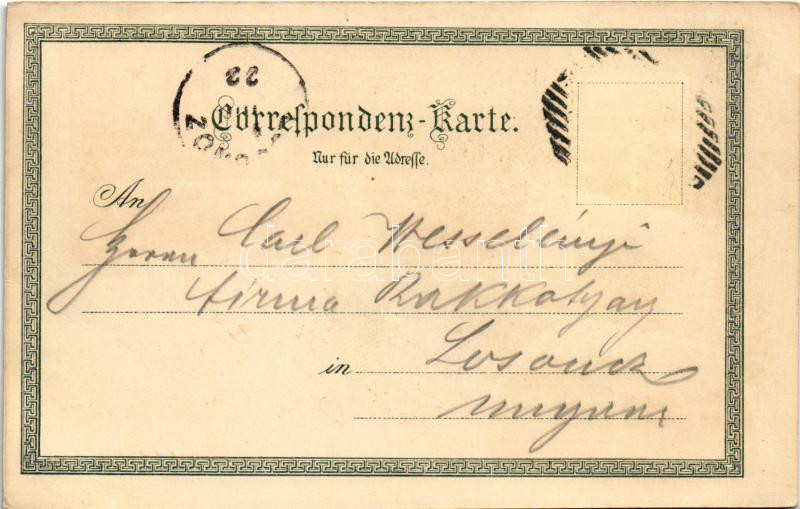 Correspondenz-Karte.
Nur für die Adresse.
22
An
Herrn Carl Wesselényi
firma Rakkottyay
in Losoncz
darabanth